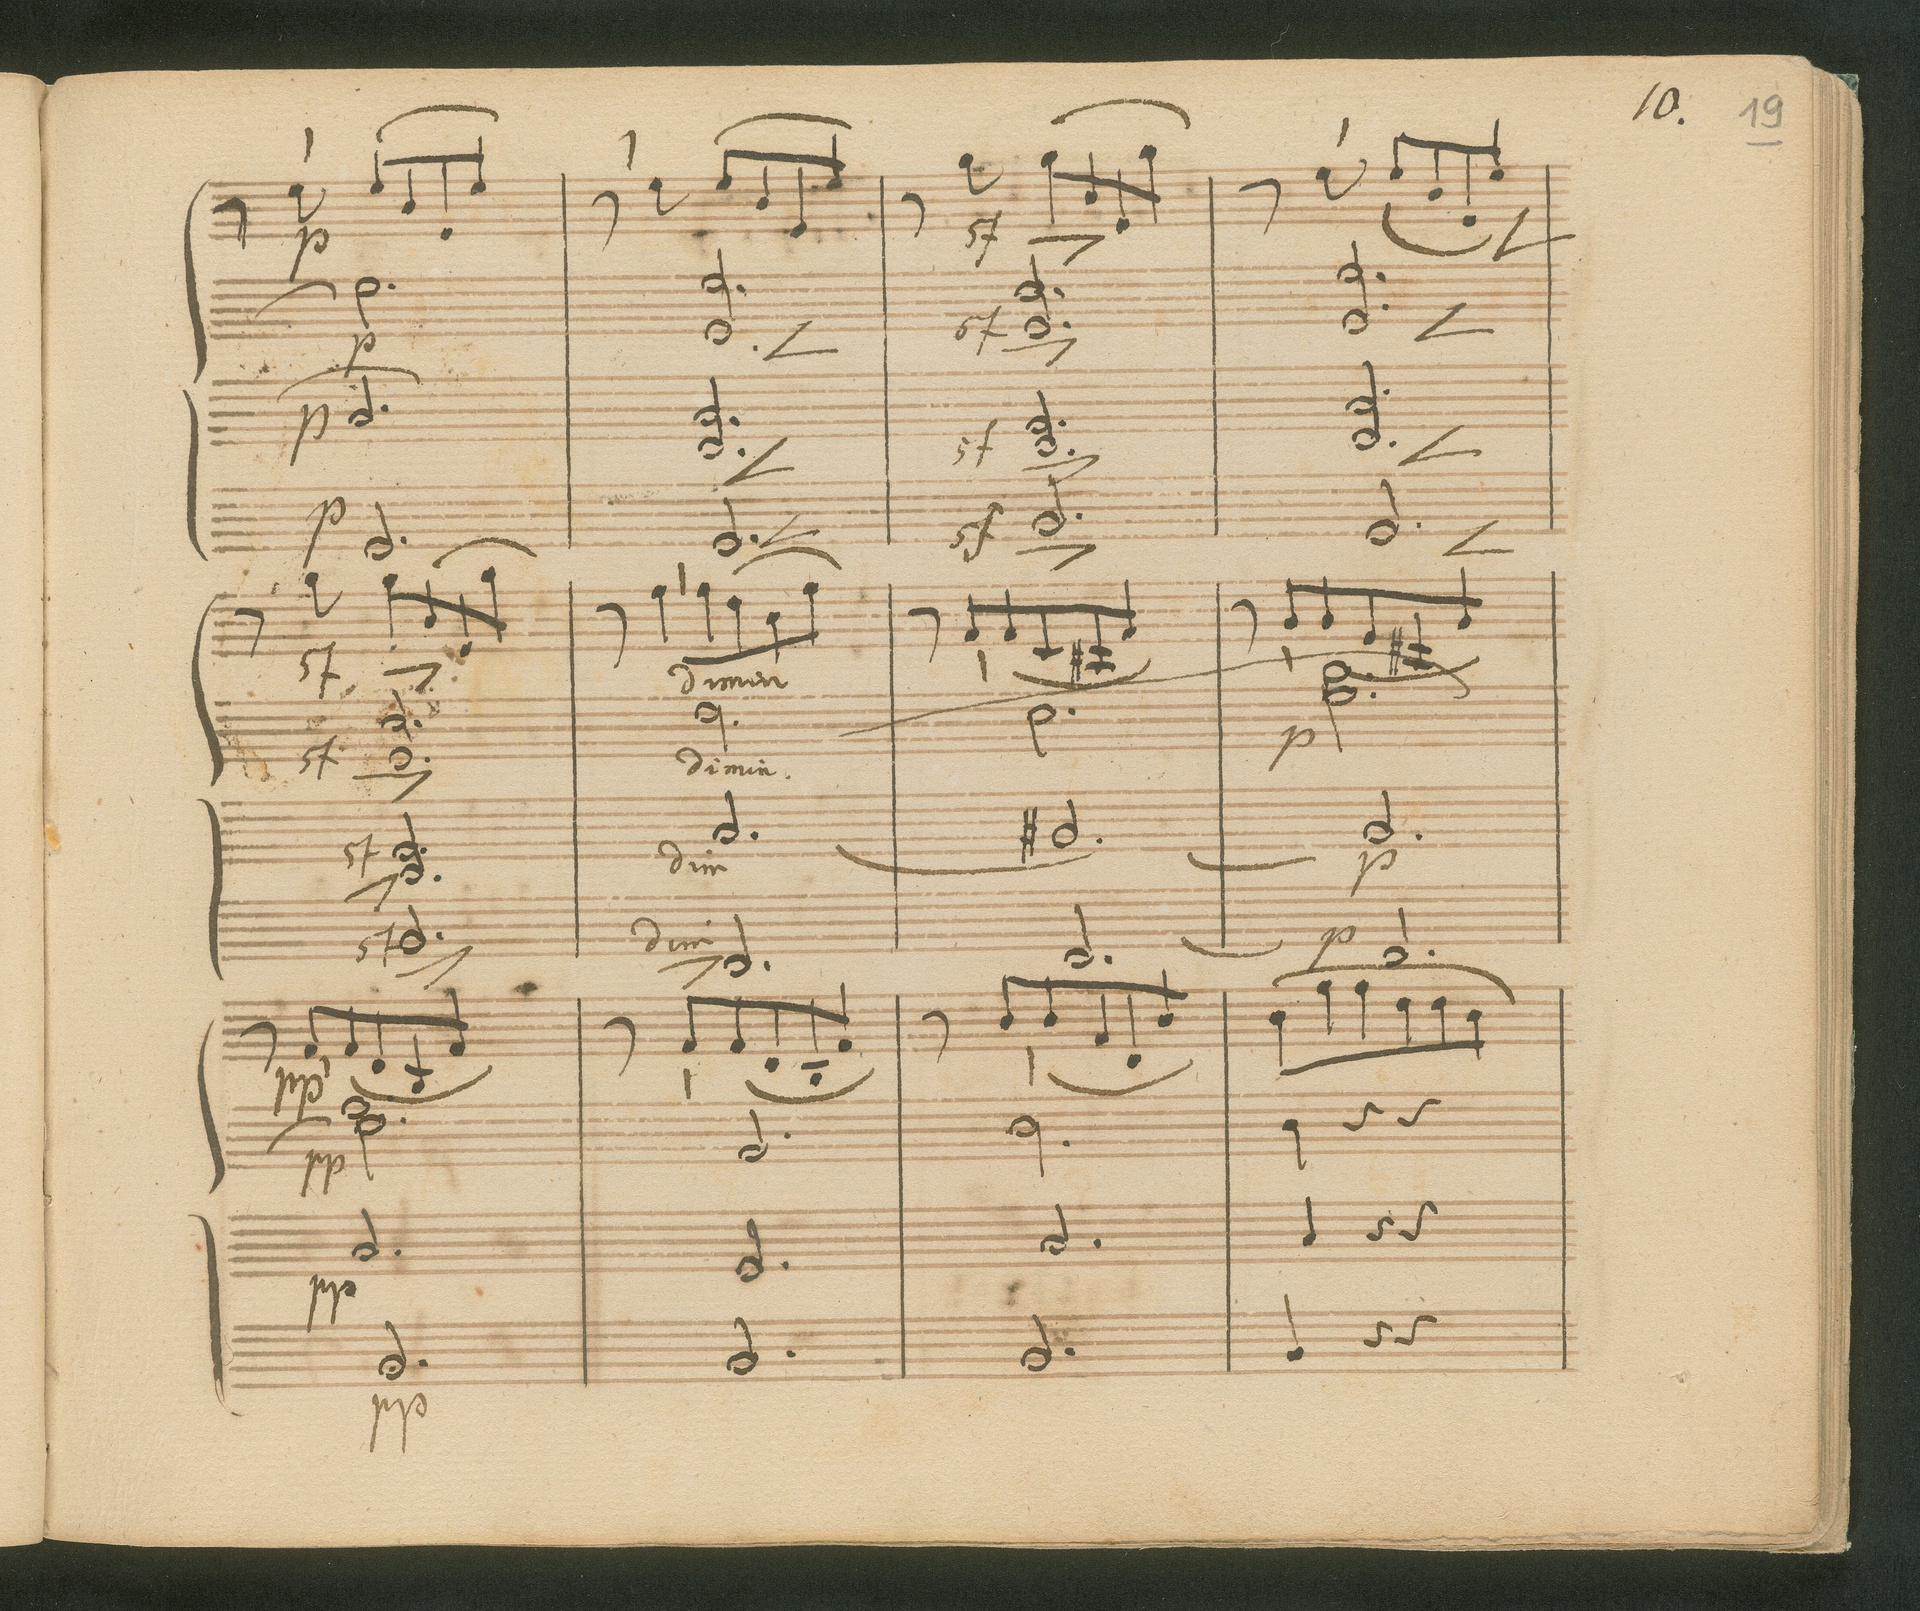 10. 19
p
sf
p
sf
p
sf
p
sf
sf
dimin
sf
dimin.
p
sf
dim
p
sf
dim
p
pp
pp
pp
pp